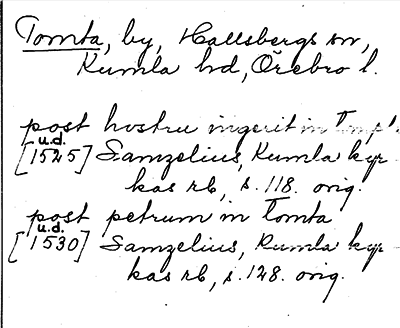 Tomta, by, Hallsbergs sn,
Kumla hd, Örebro l.
post hostru ingerit in
u.d.
[1525] Samzelius, Kumla kyr
kas rb, s. 118. orig.
post petrum in Tomta
u.d.
[1530] Samzelius, Kumla kyr
kas rb, s. 128. orig.